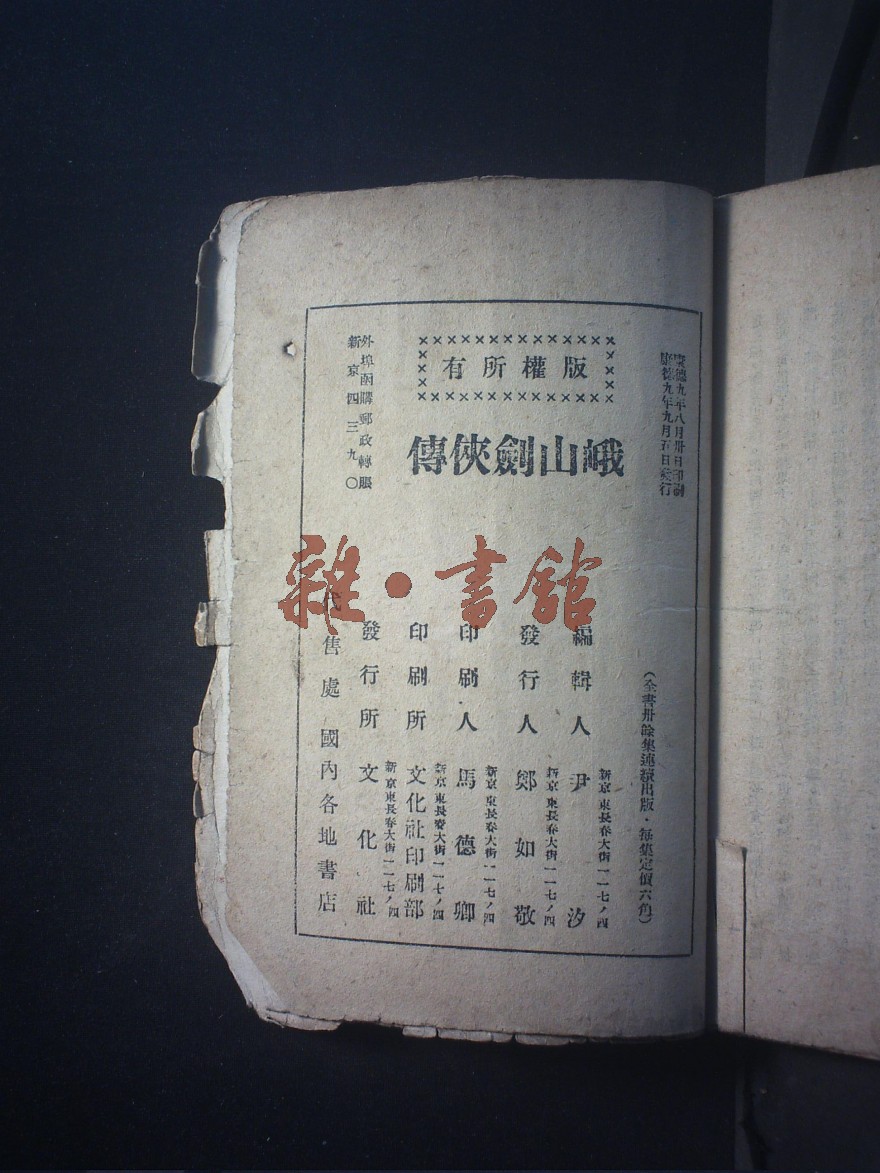 康德九年八月卅日印刷
康德九年九月五日發行
版權所有
峨山劍俠傳
外埠函購郵政轉賬
新京四三九〇
(全書卅餘集連續出版・每集定價六角)
新京東長春大街一一七ノ四
編輯人 尹汐
新京東長春大街一一七ノ四
發行人 鄭如敬
新京東長春大街一一七ノ四
印刷人 馬德卿
新京東長春大街一一七ノ四
印刷所 文化社印刷部
新京東長春大街一一七ノ四
發行所 文化社
代售處 國內各地書店
雜・書館